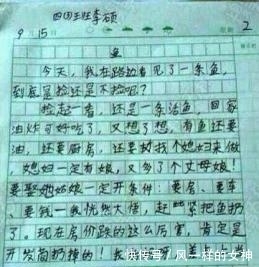 四(2)班李硕
9月15日
2
鱼
今天，我在路边看见了一条鱼，
到底是捡还是不捡呢？
捡起一看，还是一条活鱼，回家
油炸可好吃了，又想了想，有鱼还要
油，还要厨房，还要找个媳妇来做
，媳妇一定有娘，又多了个丈母娘！
要娶她姑娘一定开条件：要房、要车
、要钱……我恍然大悟，赶紧把鱼扔
了。现在房价跌的这么厉害，肯定是
开发商扔掉的！我
快传号/风一样的女神